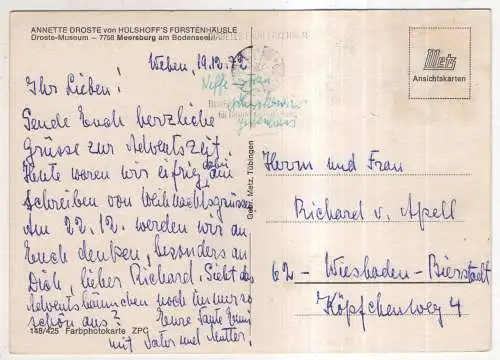 ANNETTE DROSTE von HÜLSHOFF'S FÜRSTENHÄUSLE
Droste-Museum — 7758 Meersburg am Bodensee
19.12.72
Ihr Lieben!
Sende Euch herzliche
Grüsse zur Adventszeit.
Heute waren wir eifrig dabei am
Schreiben von Weihnachtsgrüssen
Am 22.12. werden wir an
Euch denken, besonders an
Dich, lieber Richard. Sieht das
Adventsbäumchen noch immer so
schön aus? Eure Tante
mit Vater und Mutter.
148/425 Farbphotokarte ZPC
Gebr. Metz, Tübingen
Metz
Ansichtskarten
Herrn und Frau
Richard v. Apell
62 - Wiesbaden - Bierstadt
Köpfchenweg 4